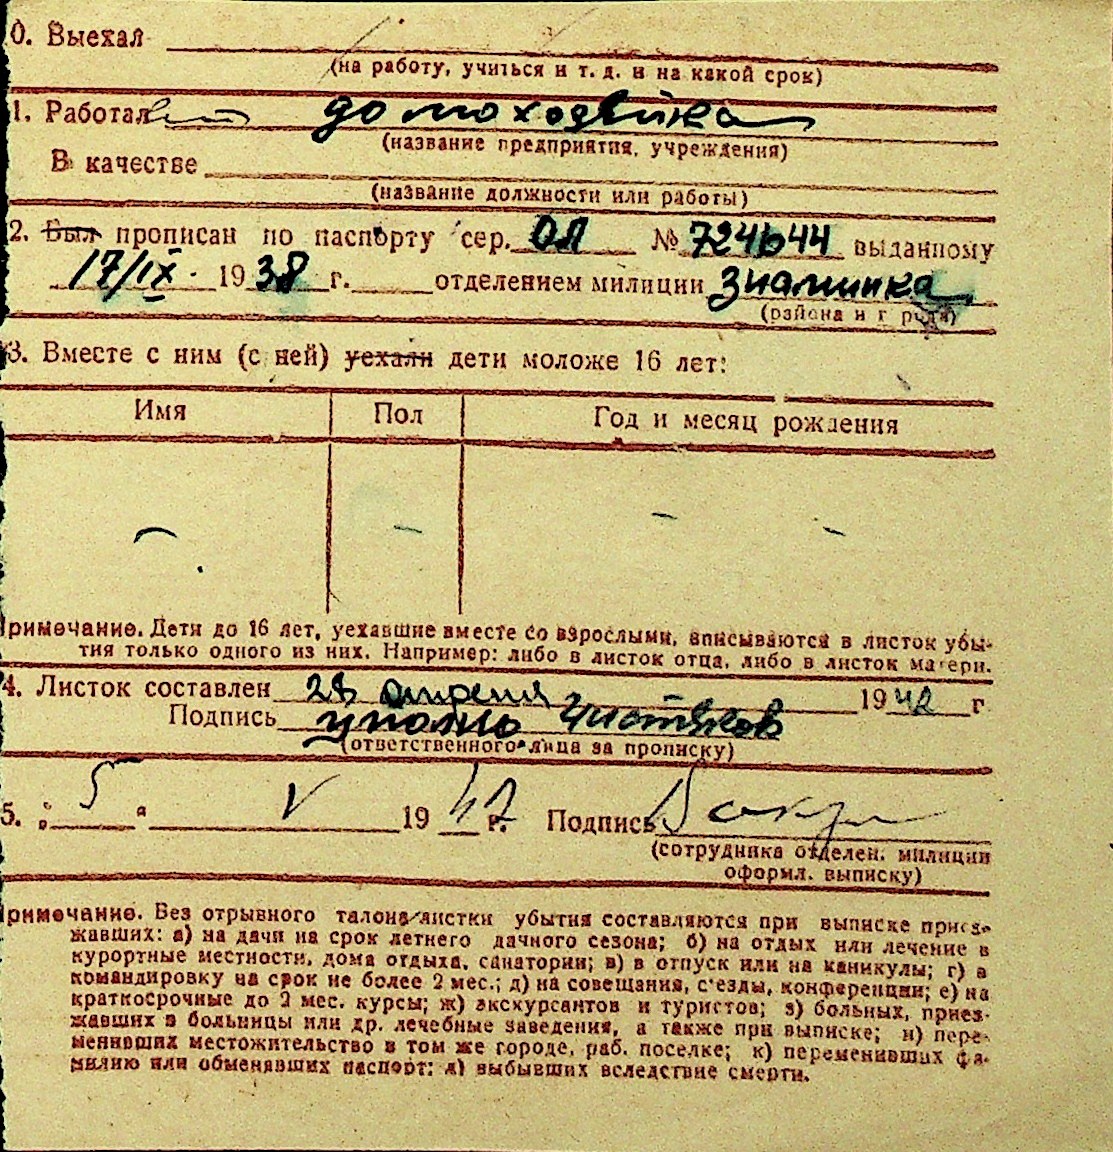 0. Выехал
(на работу, учиться и т. д. и на какой срок)
1. Работал домохозяйка
(название предприятия, учреждения)
В качестве
(название должности или работы)
2. Был прописан по паспорту сер. ОЛ № 724644 выданному
17/IX 1938 г. отделением милиции Знаминка
(района и города)
3. Вместе с ним (с ней) уехали дети моложе 16 лет:
Имя Пол Год и месяц рождения
— — — —
римечание. Дети до 16 лет, уехавшие вместе со взрослыми, вписываются в листок убы-
тия только одного из них. Например: либо в листок отца, либо в листок матери.
4. Листок составлен 28 апреля 1942 г
Подпись Чистяков
(ответственного лица за прописку)
5. „5" V 1942 г. Подпись
(сотрудника отделен. милиции
оформл. выписку)
римечание. Без отрывного талона листки убытия составляются при выписке приез-
жавших: а) на дачи на срок летнего дачного сезона; б) на отдых или лечение в
курортные местности, дома отдыха, санатории; в) в отпуск или на каникулы; г) в
командировку на срок не более 2 мес.; д) на совещания, с'езды, конференции; е) на
краткосрочные до 2 мес. курсы; ж) экскурсантов и туристов; з) больных, приез-
жавших в больницы или др. лечебные заведения, а также при выписке; и) пере-
менивших местожительство в том же городе, раб. поселке; к) переменивших фа-
милию или обменявших паспорт; л) выбывших вследствие смерти.